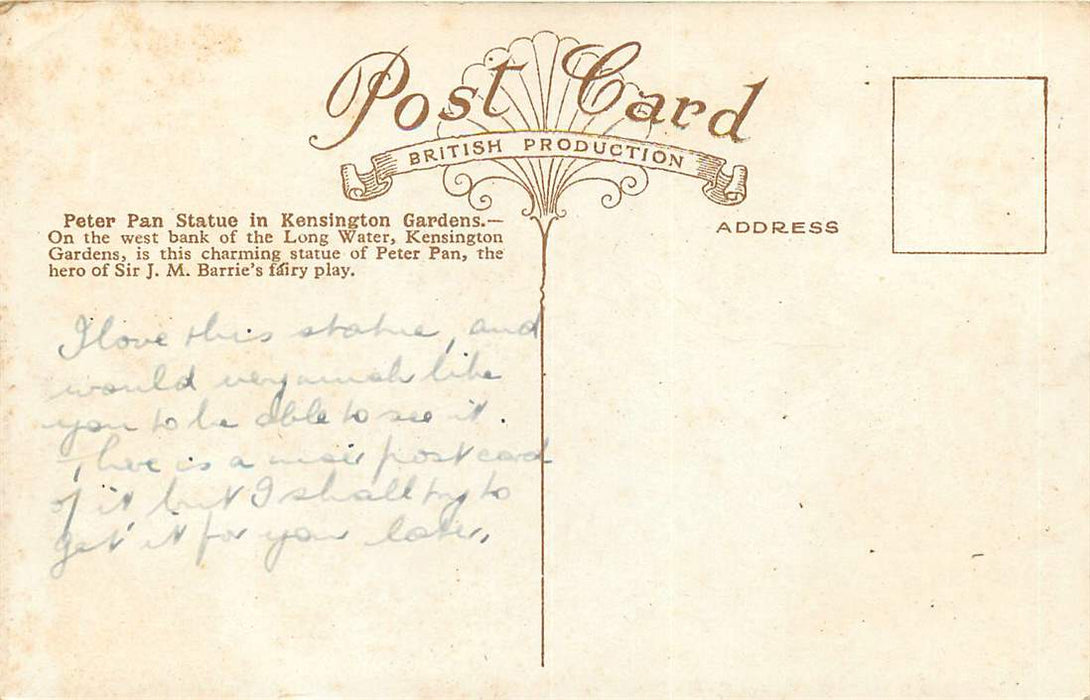 Post Card
BRITISH PRODUCTION
Peter Pan Statue in Kensington Gardens.—
On the west bank of the Long Water, Kensington
Gardens, is this charming statue of Peter Pan, the
hero of Sir J. M. Barrie's fairy play.
ADDRESS
I love this statue, and
would very much like
you to be able to see it.
There is a nicer postcard
of it but I shall try to
get it for you later.